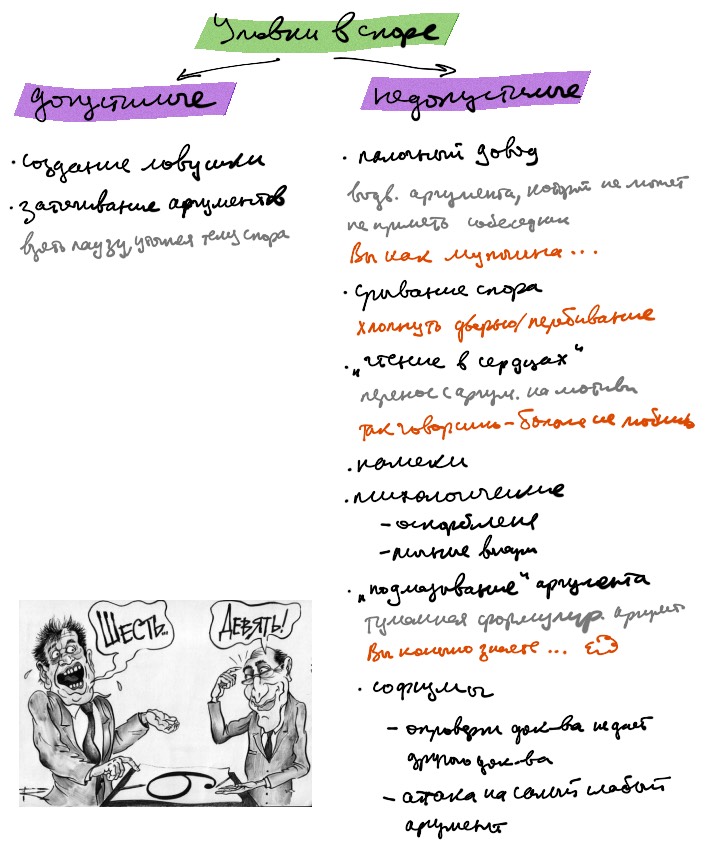 Уловки в споре
допустимые
• создание ловушки
• затягивание аргументов
взять паузу, уточняя тему спора
недопустимые
• палочный довод
выдв. аргумента, который не может
не принять собеседник
Вы как мужчина...
• срывание спора
хлопнуть дверью/перебивание
• „чтение в сердцах"
перенос с аргум. на мотивы
так говоришь – больше не любишь
• намеки
• психологические
– оскорбления
– личные
• „подмазывание" аргумента
туманная формулир. аргумента
Вы конечно знаете ...
• софизмы
– опроверж док-ва не дает
другого док-ва
– атака на самый слабый
аргумент
ШЕСТЬ..
ДЕВЯТЬ!
6